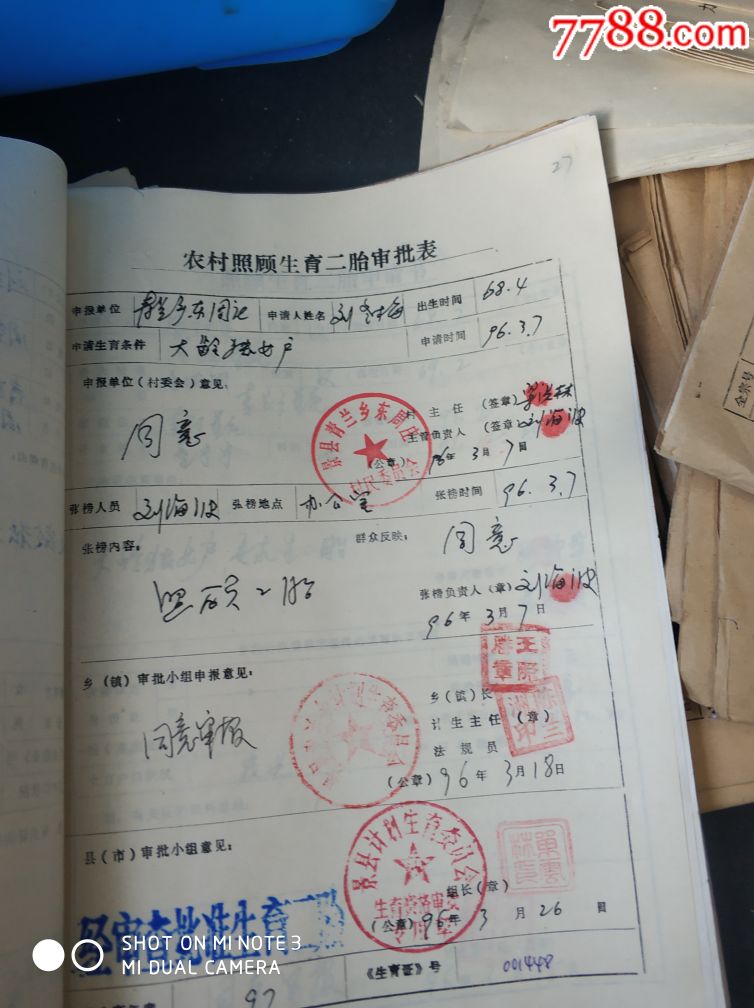 7788.com
27
农村照顾生育二胎审批表
申报单位 青兰乡东周庄 申请人姓名 刘 出生时间 68.4
申请生育条件 大龄独女户 申请时间 96.3.7
申报单位(村委会)意见:
景县青兰乡东周庄
村民委员会
同意
村主任 (签章)
主管负责人 (签章) 刘海波
(公章) 96年3月7日
张榜人员 刘海波 张榜地点 办公室 张榜时间 96.3.7
张榜内容: 群众反映: 同意
照顾二胎
张榜负责人(章) 刘海波
96年3月7日
乡(镇)审批小组申报意见:
同意审报
乡(镇)长
计生主任 (章)
法规员
(公章) 96年3月18日
县(市)审批小组意见:
景县计划生育委员会
生育资格审
组长(章)
(公章) 96年3月26日
经审查批准生育二胎
《生育证》号 001448
97
全宗号
SHOT ON MI NOTE 3
MI DUAL CAMERA